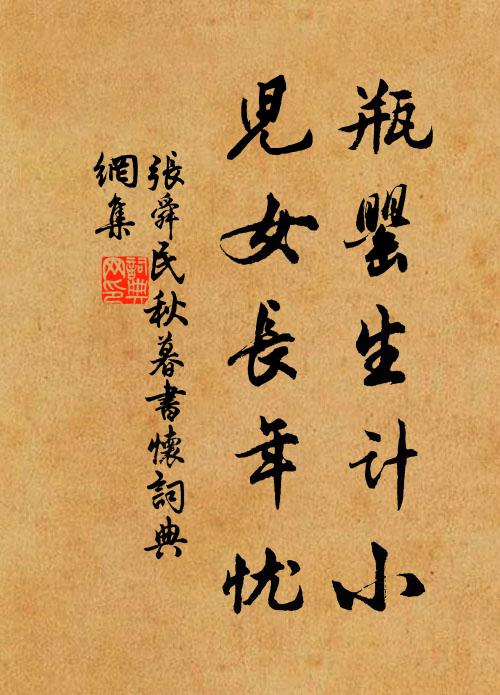 瓶罌生计小
兒女長年忧
張舜民秋暮書懷詞典
網集
詞典
网印